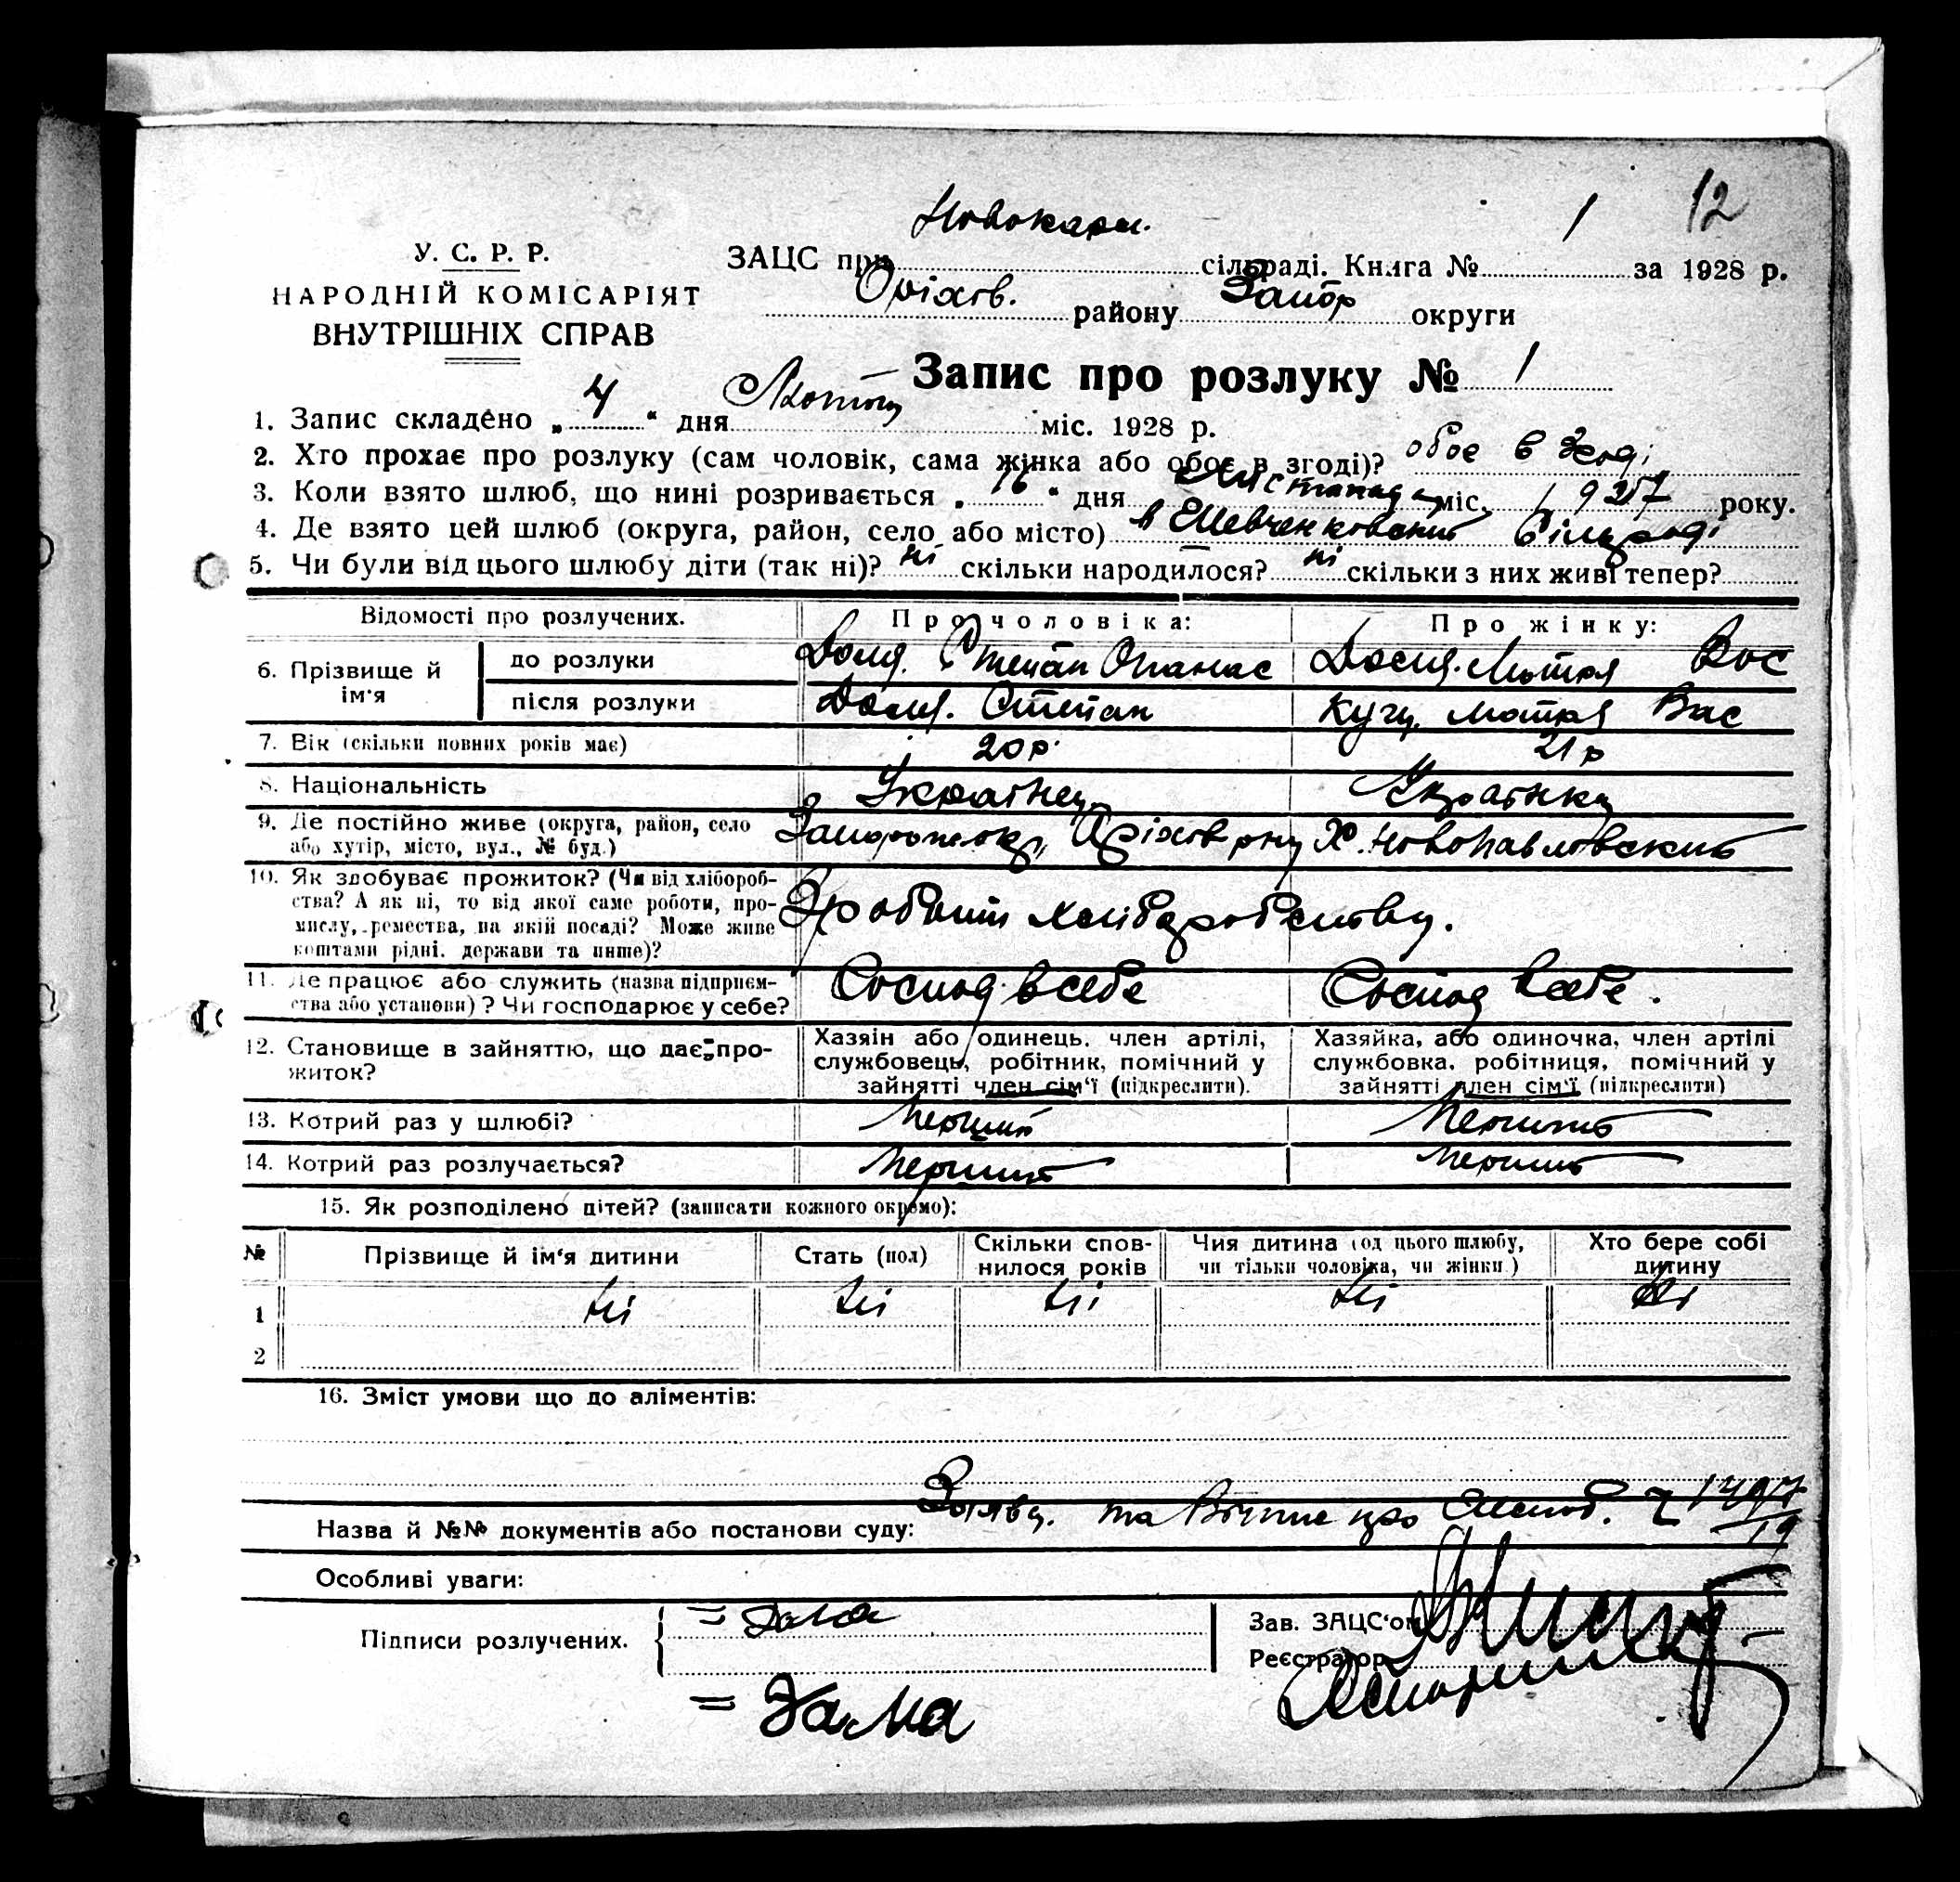 12
Новокарл.
1
У. С. Р. Р.
ЗАЦС при сільраді. Книга № за 1928 р.
НАРОДНІЙ КОМІСАРІЯТ
Оріхів. району Запор округи
ВНУТРІШНІХ СПРАВ
Запис про розлуку № 1
1. Запис складено „ 4 “ дня Лютого міс. 1928 р.
2. Хто прохає про розлуку (сам чоловік, сама жінка або обоє в згоді)? обоє в згоді
3. Коли взято шлюб, що нині розривається „ 16 “ дня Листопада міс. 1927 року.
4. Де взято цей шлюб (округа, район, село або місто) в Шевченковский Сільраді
5. Чи були від цього шлюбу діти (так ні)? ні скільки народилося? ні скільки з них живі тепер?
Відомості про розлучених. Про чоловіка: Про жінку:
6. Прізвище й ім'я
до розлуки Степан Опанас Мотря Вас
після розлуки Степан Мотря Вас
7. Вік (скільки повних років має) 20 р. 21 р
8. Національність Українец Українка
9. Де постійно живе (округа, район, село або хутір, місто, вул., № буд.) Оріхов рну Х. Новопавловский
10. Як здобуває прожиток? (Чи від хлібороб-
ства? А як ні, то від якої саме роботи, про-
мислу, ремества, на якій посаді? Може живе
коштами рідні. держави та инше)?
хліборобству.
11. Де працює або служить (назва підприєм-
ства або установи)? Чи господарює у себе?
Господ. в себе Господ в себе.
12. Становище в зайняттю, що дає про-
житок?
Хазяін або одинець. член артілі,
службовець, робітник, помічний у
зайнятті член сім'ї (підкреслити).
Хазяйка, або одиночка, член артілі
службовка, робітниця, помічний у
зайнятті член сім'ї (підкреслити)
13. Котрий раз у шлюбі? Перший Перший
14. Котрий раз розлучається? Перший Перший
15. Як розподілено дітей? (записати кожного окремо):
№ Прізвище й ім'я дитини Стать (пол) Скільки спов-
нилося років Чия дитина (од цього шлюбу,
чи тільки чоловіка, чи жінки.) Хто бере собі
дитину
1 ні ні ні ні ні
2
16. Зміст умови що до аліментів:
Назва й №№ документів або постанови суду: Заява. та про
Особливі уваги:
Підписи розлучених. = Дама
Зав. ЗАЦС'ом
Реєстратор
= Дама